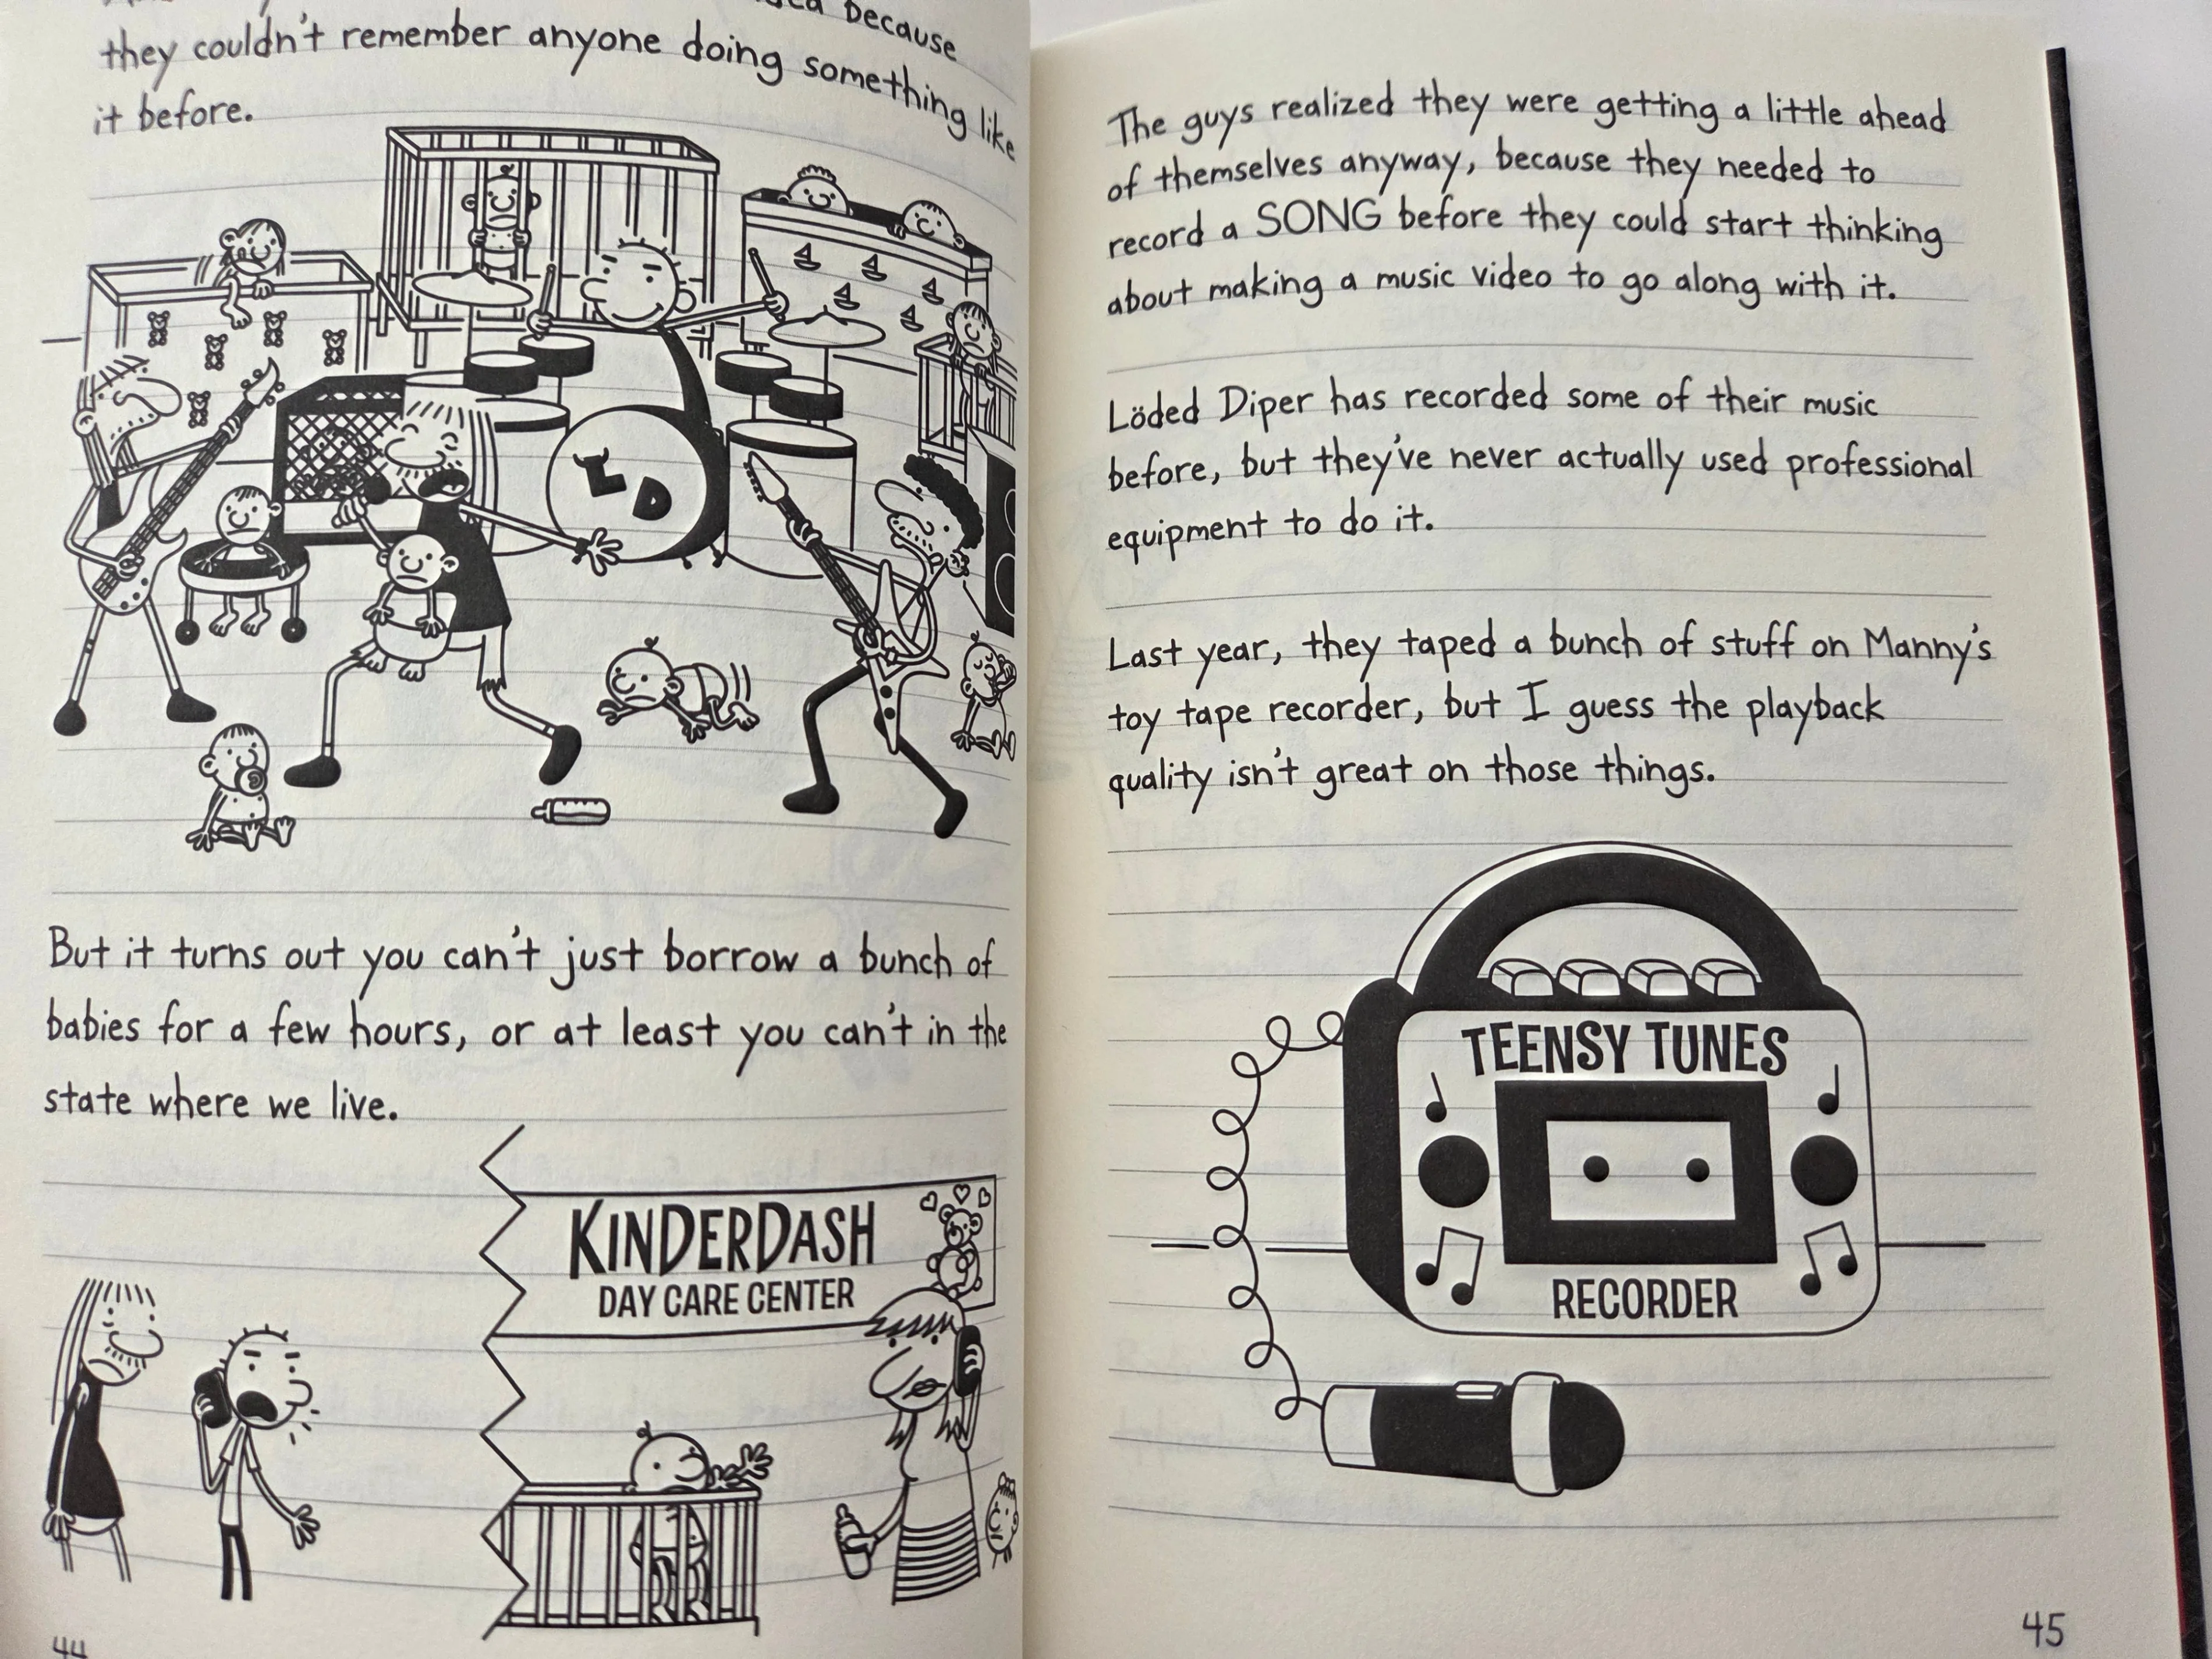 because
they couldn't remember anyone doing something like
it before.
LD
But it turns out you can't just borrow a bunch of
babies for a few hours, or at least you can't in the
state where we live.
KINDERDASH
DAY CARE CENTER
44
The guys realized they were getting a little ahead
of themselves anyway, because they needed to
record a SONG before they could start thinking
about making a music video to go along with it.
Löded Diper has recorded some of their music
before, but they've never actually used professional
equipment to do it.
Last year, they taped a bunch of stuff on Manny's
toy tape recorder, but I guess the playback
quality isn't great on those things.
TEENSY TUNES
RECORDER
45